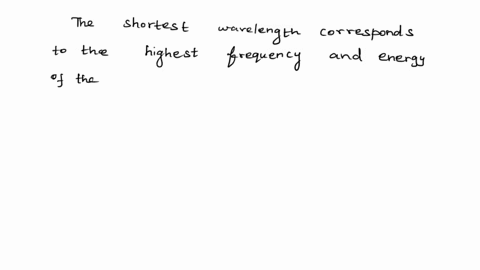 The shortest wavelength corresponds
to the highest frequency and energy
of the